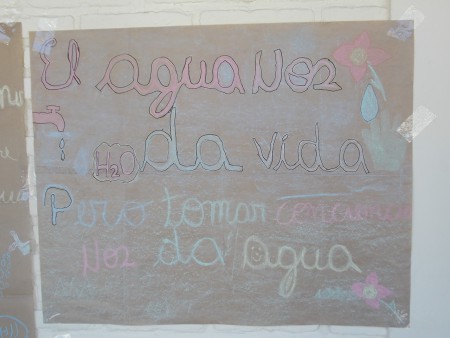 El agua Nos
H2O da vida
Pero tomar conciencia
Nos da agua